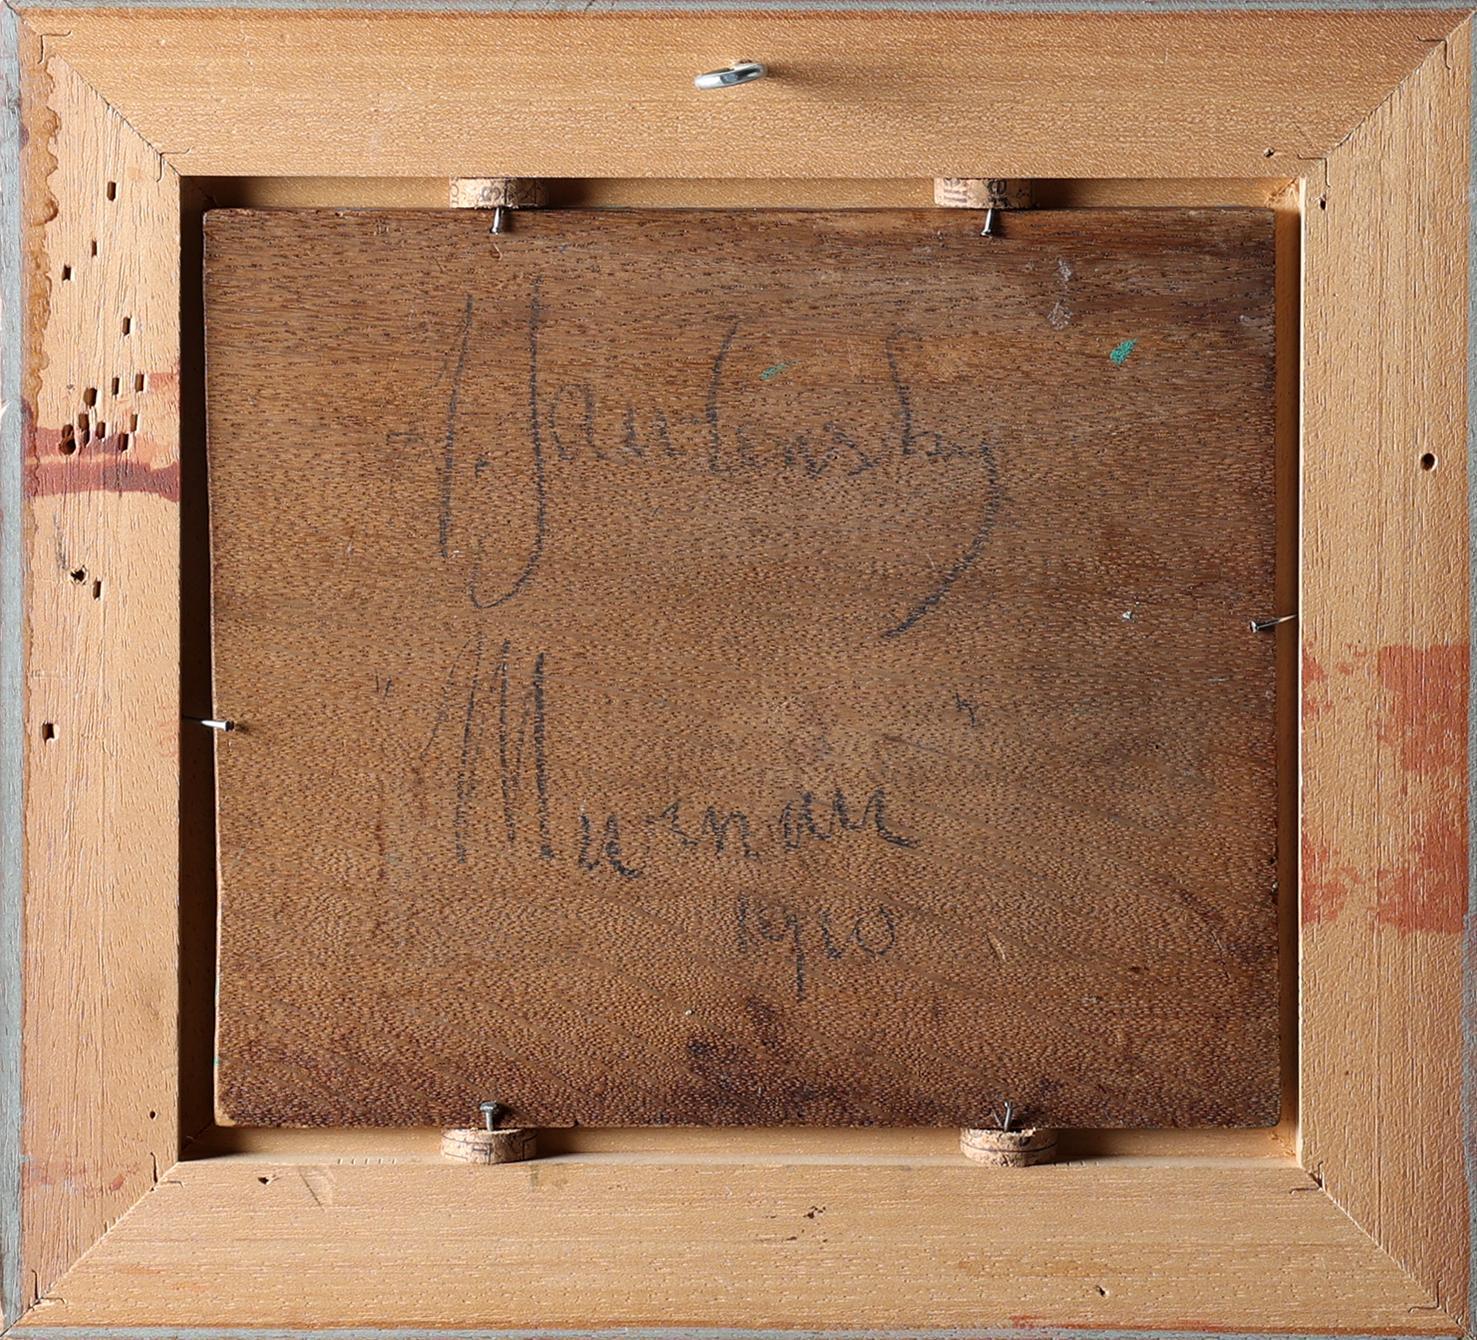 A. Jawlensky
"Murnau"
1910